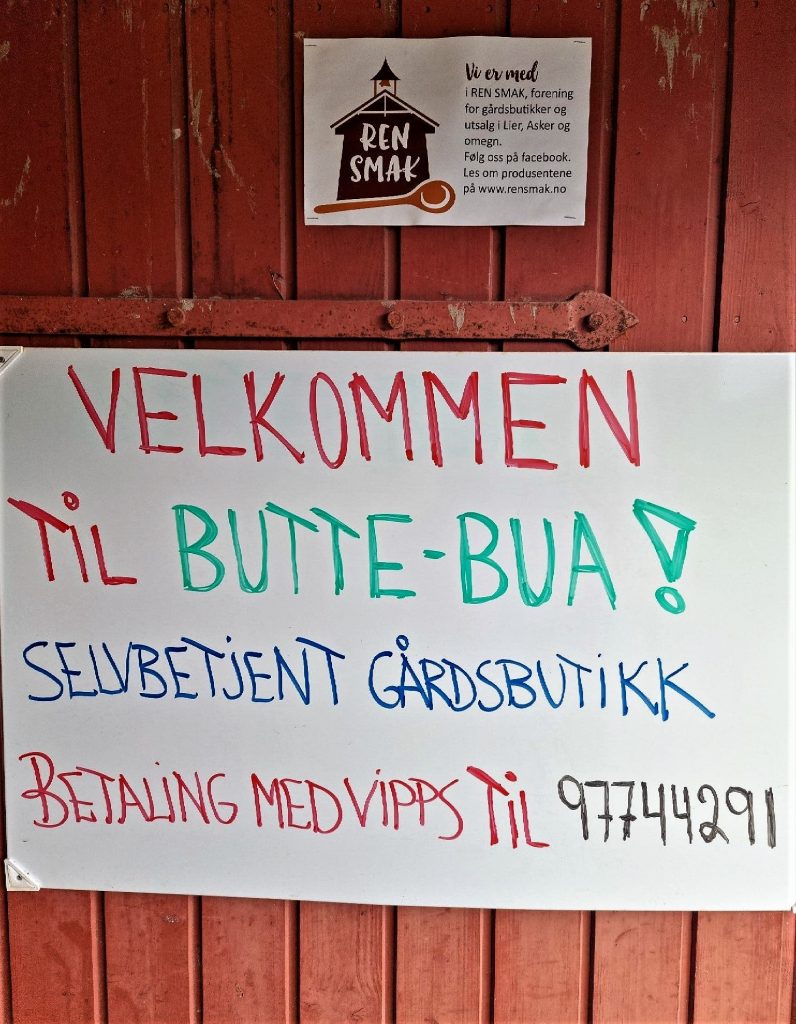 REN
SMAK
Vi er med
i REN SMAK, forening
for gårdsbutikker og
utsalg i Lier, Asker og
omegn.
Følg oss på facebook.
Les om produsentene
på www.rensmak.no
VELKOMMEN
TiL BUTTE-BUA!
SELVBETJENT GÅRDSBUTiKK
BETALING MED ViPPS TiL 97744291